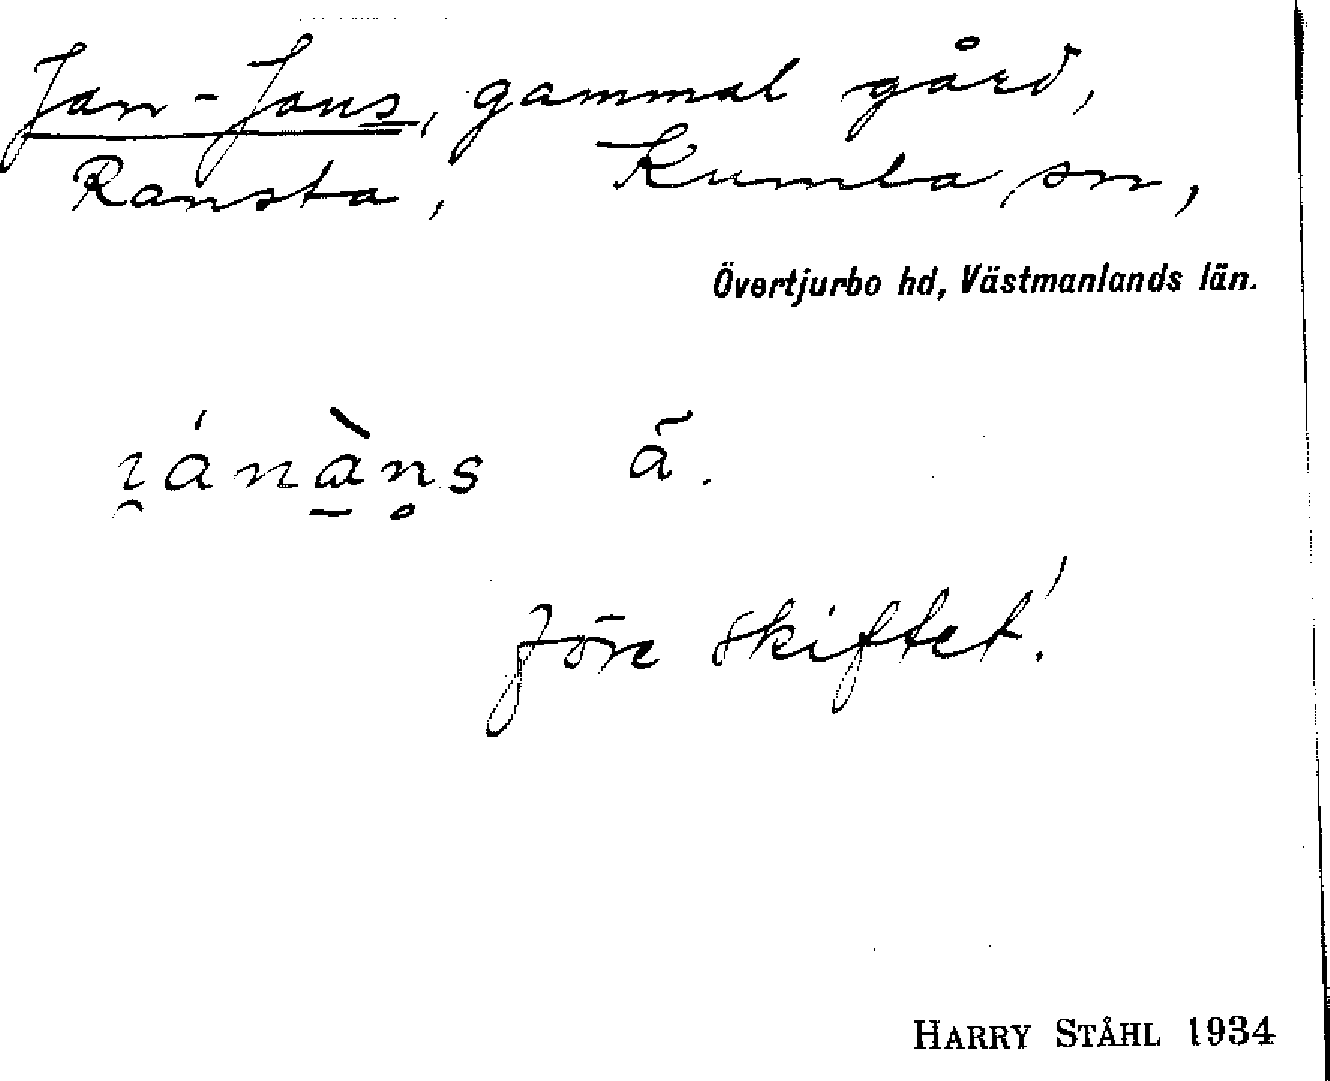 Jan-Jans, gammal gård,
Ransta, Kumla sn,
Övertjurbo hd, Västmanlands län.
i̯ánàn̥s ã.
före skiftet!
HARRY STÅHL 1934